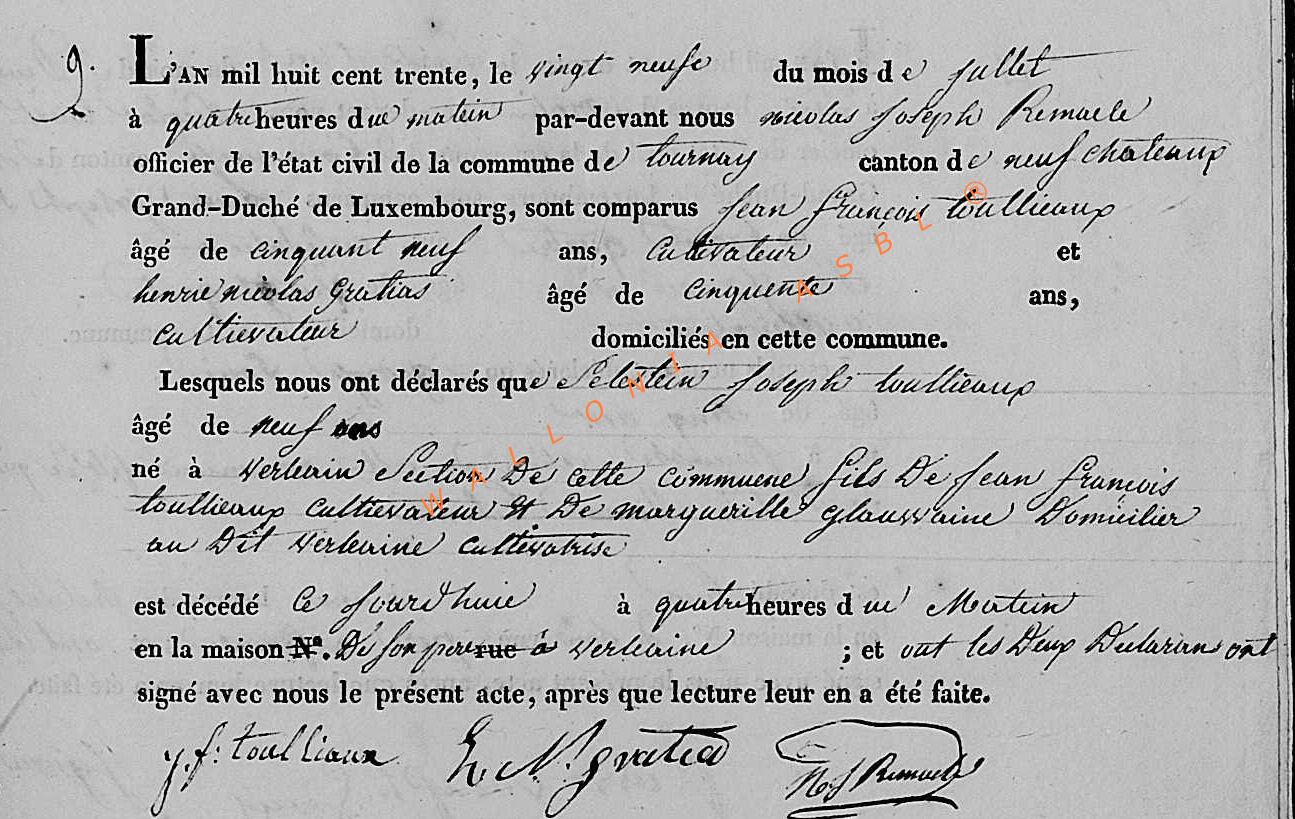 9.
L'AN mil huit cent trente, le vingt neufe du mois de jullet
à quatre heures due matein par-devant nous nicolas joseph Remacle
officier de l'état civil de la commune de tournay canton de neufchateaux
Grand-Duché de Luxembourg, sont comparus jean françois toullieaux
âgé de cinquant neuf ans, Cultivateur et
henrie nicolas Gratias âgé de cinquente ans,
cultievateur domiciliés en cette commune.
Lesquels nous ont déclarés que Selestein joseph toullieaux
âgé de neuf ans
né à verleain Section De cette commuene fils De jean françois
toullieaux cultievateur et De marguerille Domicilier
au Dit verleaine cultivatrise
est décédé Ce jourd'huie à quatre heures due Matein
en la maison N°. De son pere rue à verleaine ; et ont les Deux Declarans ont
signé avec nous le présent acte, après que lecture leur en a été faite.
j. f: toulliaux h N. gratia N J Remacle
WALLONIA ASBL ®